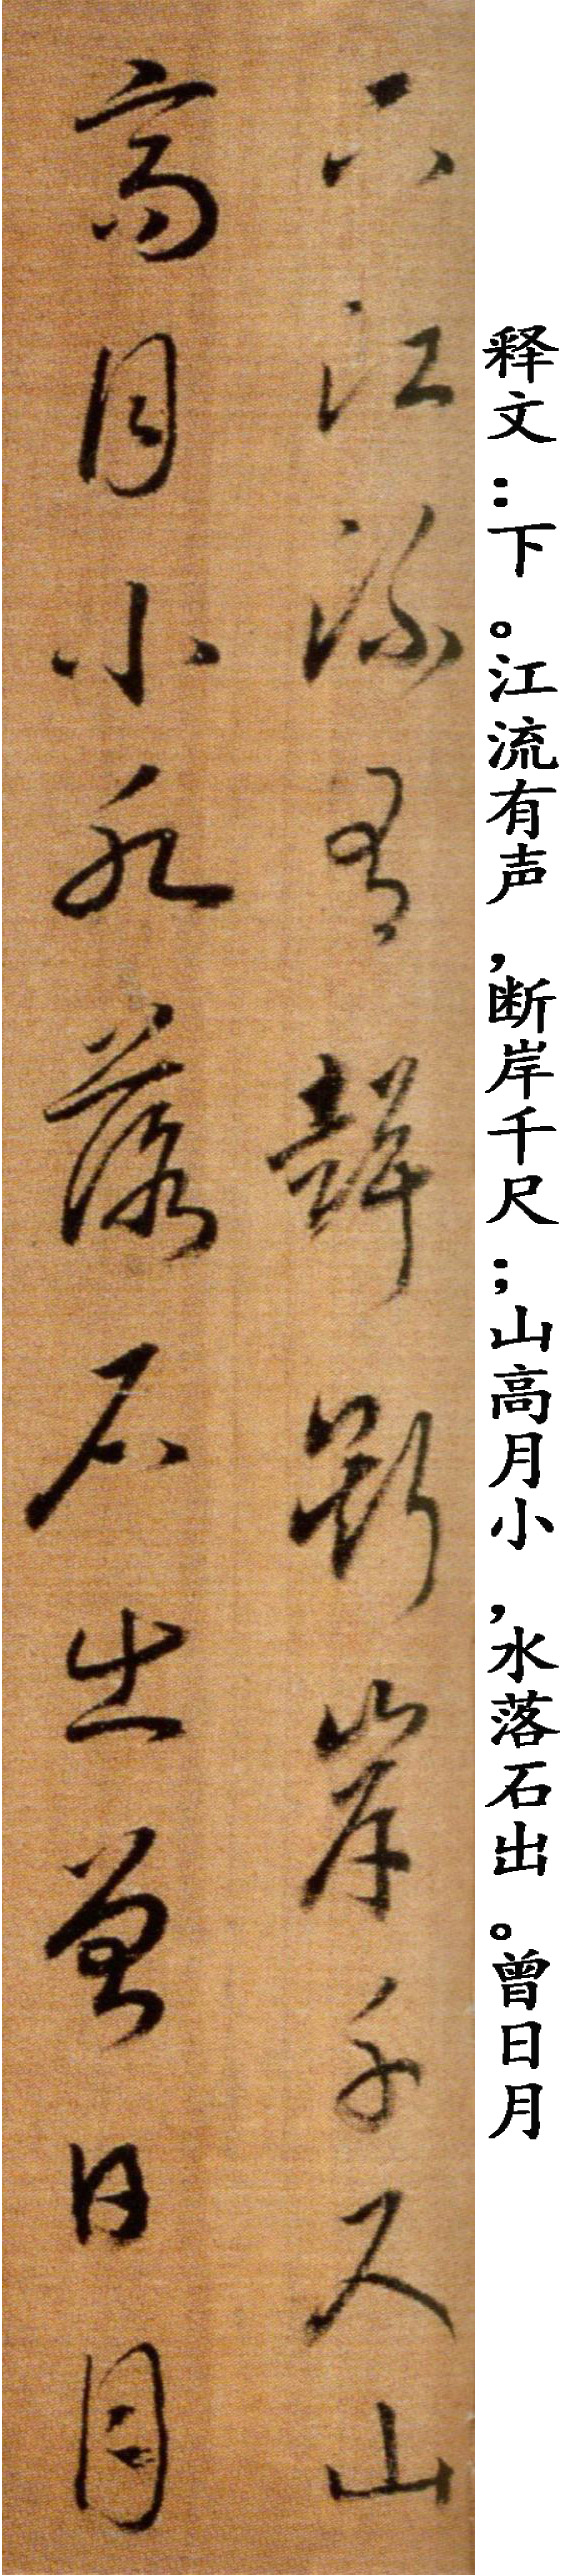 释文：下。江流有声，断岸千尺；山高月小，水落石出。曾日月
下江流有聲斷岸千尺山
高月小水落石出曾日月